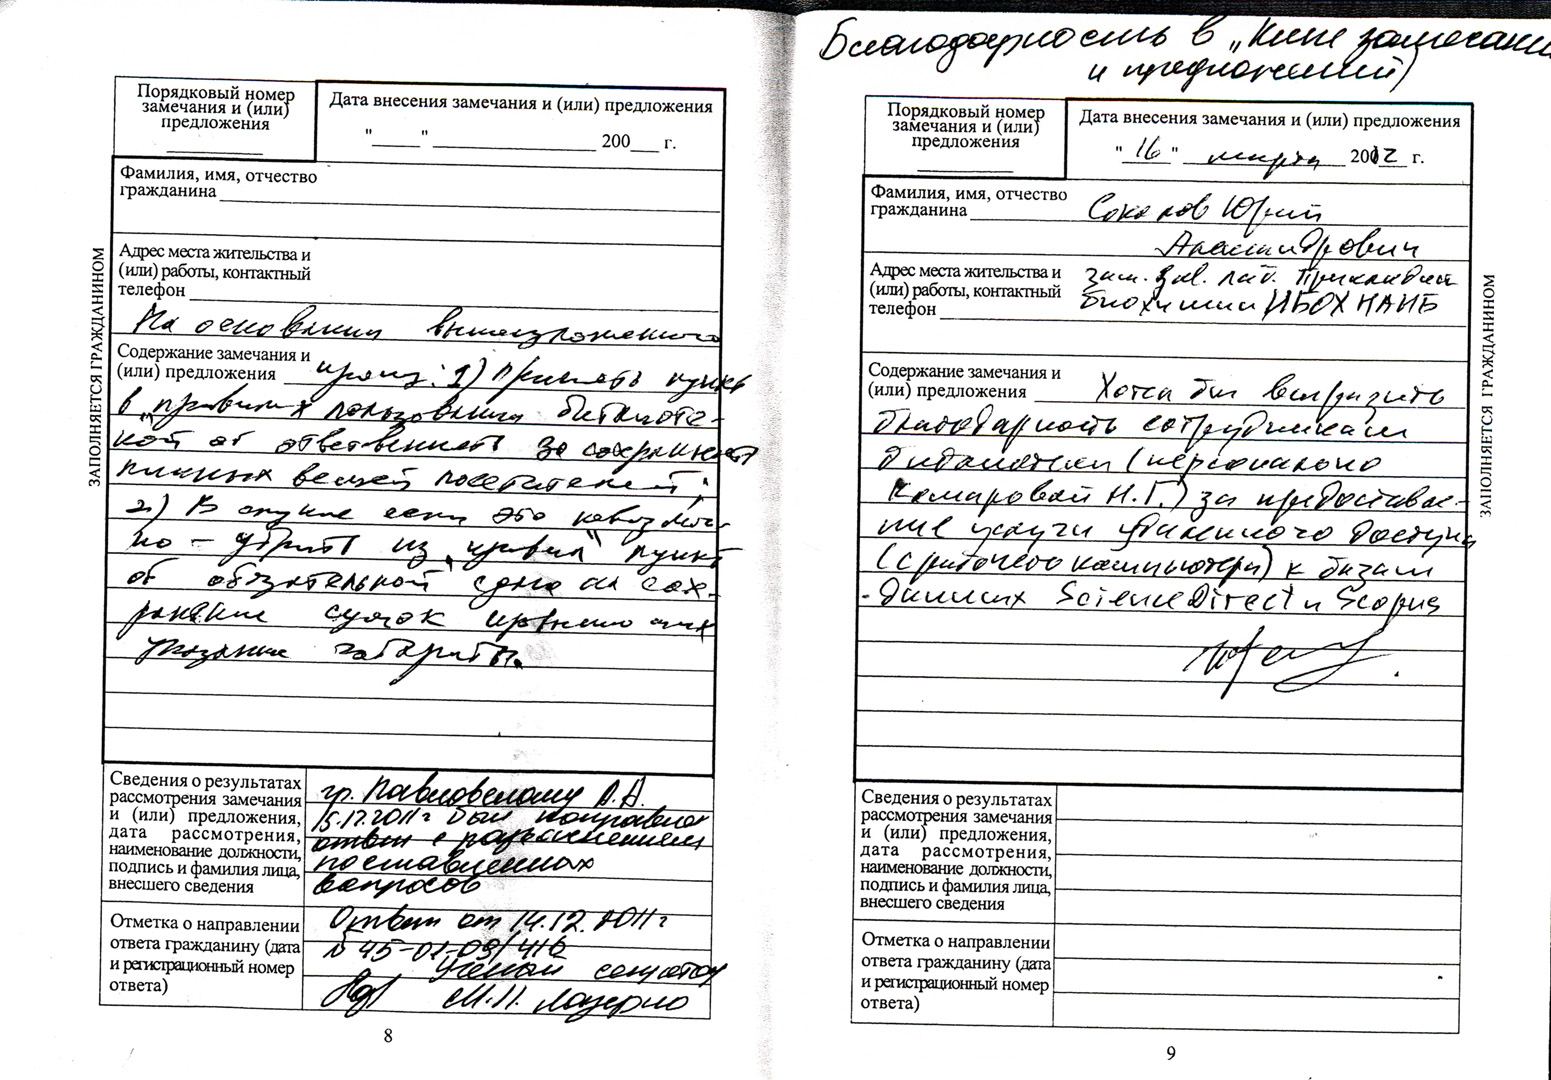 Порядковый номер
замечания и (или)
предложения
Дата внесения замечания и (или) предложения
"____" ______________ 200___ г.
Фамилия, имя, отчество
гражданина
Адрес места жительства и
(или) работы, контактный
телефон
На основании вышеизложенного
Содержание замечания и
(или) предложения прошу: 1) Принять пункт
в „правилах пользования библиоте-
кой об ответственность за сохранность
личных вещей посетителей;
2) В случае если это невозмож-
но – убрать из „правил" пункт
об обязательной сдаче на сох-
ранение сумок
указание габариты.
ЗАПОЛНЯЕТСЯ ГРАЖДАНИНОМ
Сведения о результатах
рассмотрения замечания
и (или) предложения,
дата рассмотрения,
наименование должности,
подпись и фамилия лица,
внесшего сведения
гр. Павловскому А.А.
15.12.2011г был направлен
ответ с разъяснением
поставленных
вопросов
Отметка о направлении
ответа гражданину (дата
и регистрационный номер
ответа)
Ответ от 14.12.2011г
№ 45-01-09/416
Ученый секретарь
М.П.
8
Благодарность в „Книге замечани
и предложений)
Порядковый номер
замечания и (или)
предложения
Дата внесения замечания и (или) предложения
"16" марта 2012 г.
Фамилия, имя, отчество
гражданина Соколов Юрий
Александрович
Адрес места жительства и
(или) работы, контактный
телефон
зам. зав. лаб. Прикладной
биохимии ИБОХ НАНБ
Содержание замечания и
(или) предложения Хотел бы выразить
благодарность сотрудникам
библиотеки (персонально
Комаровой Н.Г.) за предоставле-
ние услуги удаленного доступа
(с рабочего компьютера) к базам
данных ScienceDirect и Scopus
ЗАПОЛНЯЕТСЯ ГРАЖДАНИНОМ
Сведения о результатах
рассмотрения замечания
и (или) предложения,
дата рассмотрения,
наименование должности,
подпись и фамилия лица,
внесшего сведения
Отметка о направлении
ответа гражданину (дата
и регистрационный номер
ответа)
9